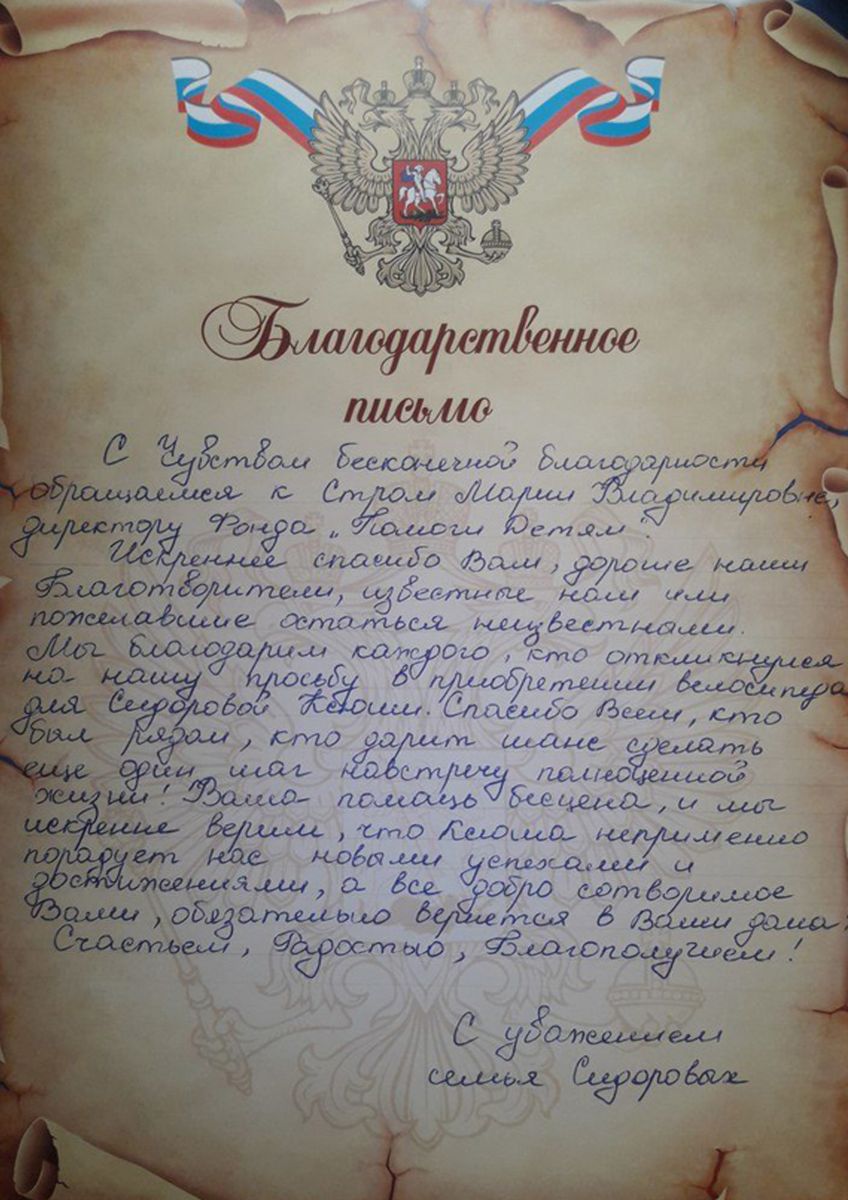 Благодарственное
письмо
С Чувством бесконечной благодарности
обращаемся к Стром Марии Владимировне,
директору Фонда „Помоги Детям".
Искреннее спасибо Вам, дорогие наши
Благотворители, известные нам или
пожелавшие остаться неизвестными.
Мы благодарим каждого, кто откликнулся
на нашу просьбу в приобретении велосипеда
для Сидоровой Ксюши. Спасибо Всем, кто
был рядом, кто дарит шанс сделать
еще один шаг навстречу полноценной
жизни! Ваша помощь бесцена, и мы
искренне верим, что Ксюша неприменно
порадует нас новыми успехами и
достижениями, а все добро сотворимое
Вами, обязательно вернется в Ваши дома:
Счастьем, Радостью, Благополучием!
С уважением
семья Сидоровых